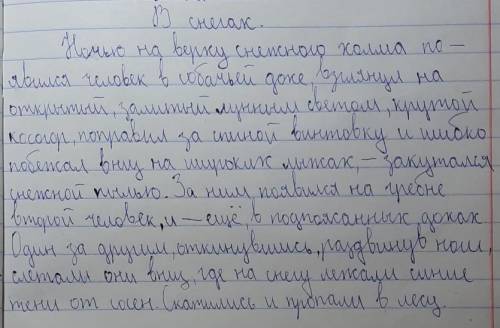 В снегах.
Ночью на верху снежного холма по-
явился человек в собачьей дохе, взглянул на
открытый, залитый лунным светом, крутой
косогор, поправил за спиной винтовку и шибко
побежал вниз на широких лыжах, – закутался
снежной пылью. За ним появился на гребне
второй человек, и – ещё, в подпоясанных дохах
Один за другим, откинувшись, раздвинув ноги,
слетали они вниз, где на снегу лежали синие
тени от сосен. Скатились и пропали в лесу.